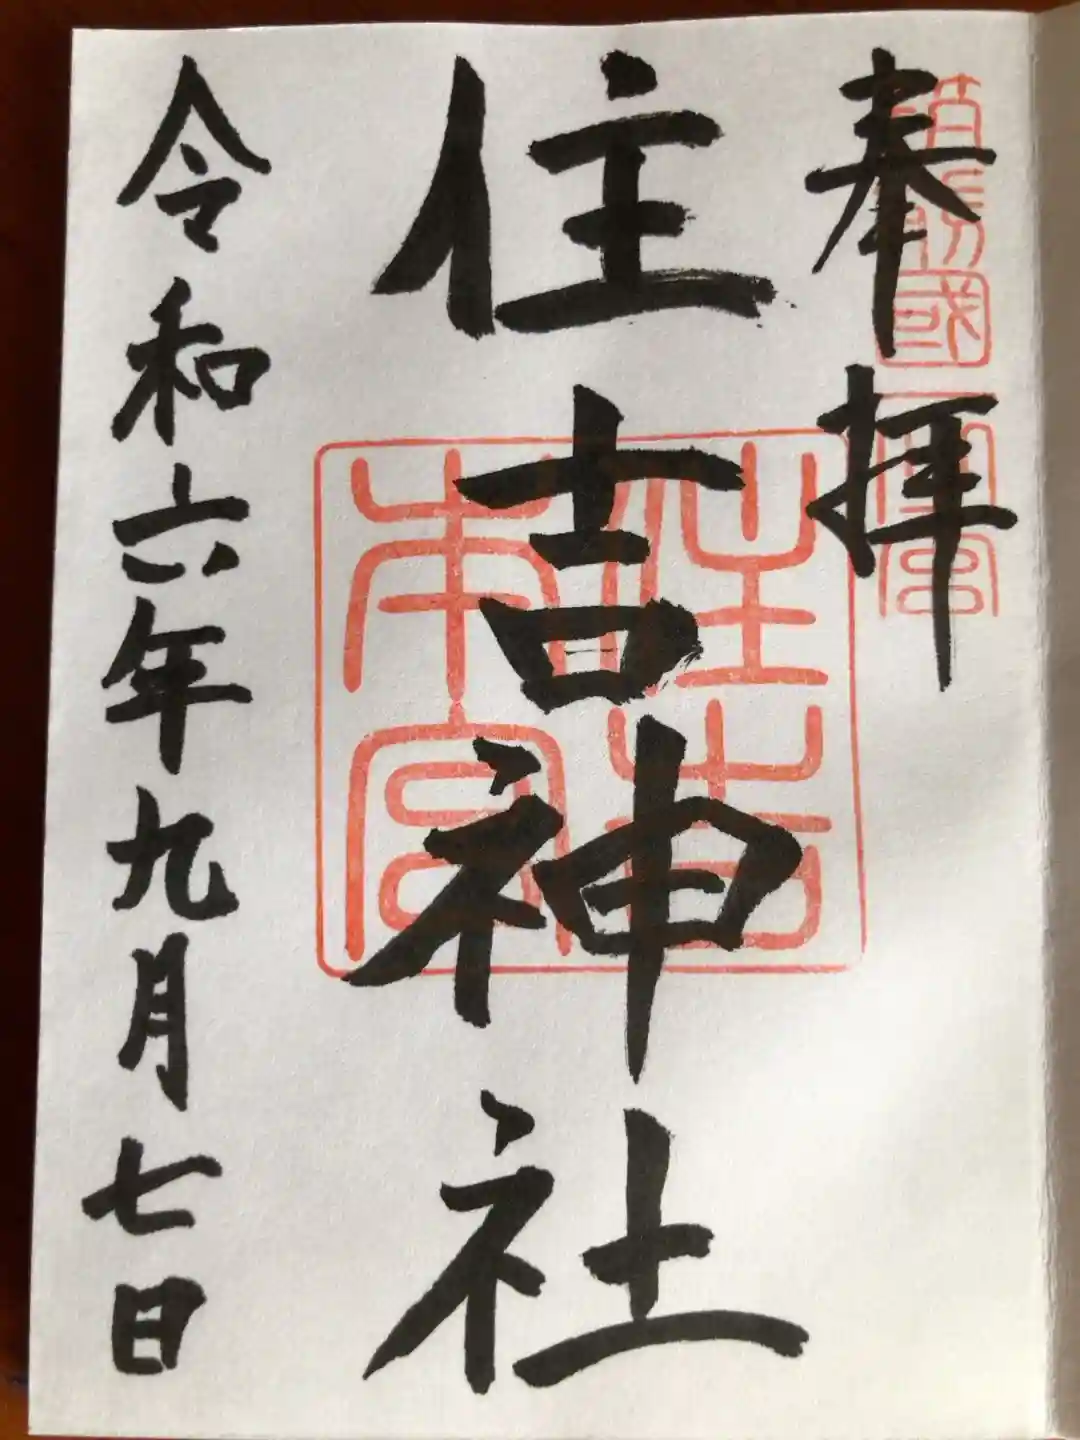 奉拝
筑前國一之宮
住吉神社
住吉本宮
令和六年九月七日